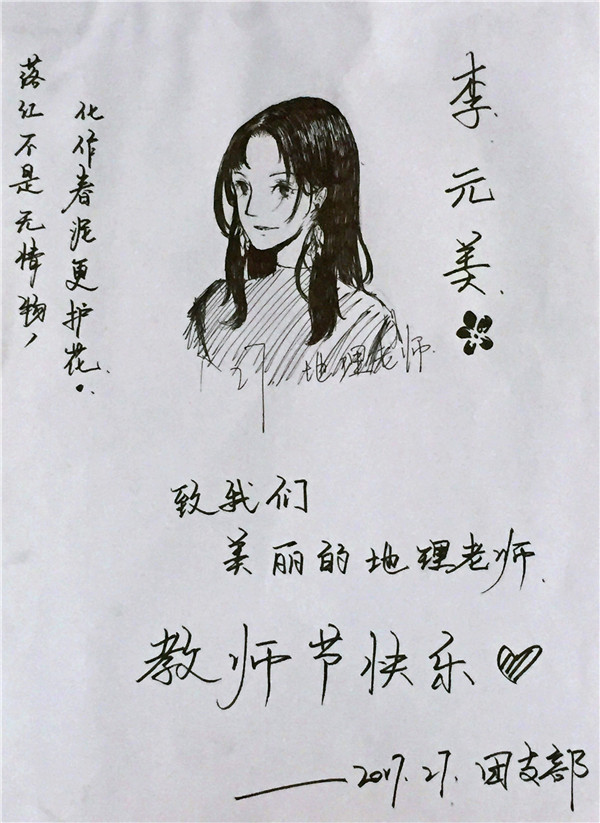 李元美
落红不是无情物,
化作春泥更护花.
地理老师.
致我们
美丽的地理老师.
教师节快乐
——2017.27.团支部